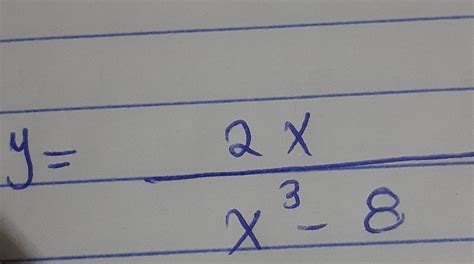 y = 2x / x³ - 8